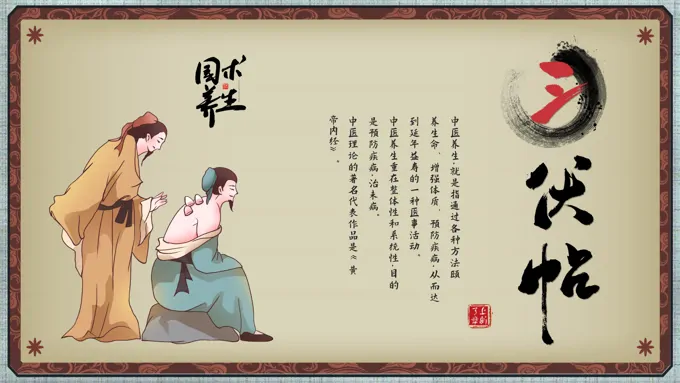 三伏帖
中医养生:就是指通过各种方法颐
养生命、增强体质、预防疾病,从而达
到延年益寿的一种医事活动。
中医养生重在整体性和系统性,目的
是预防疾病,治未病。
中医理论的著名代表作品是《黄
帝内经》。
国术
养生